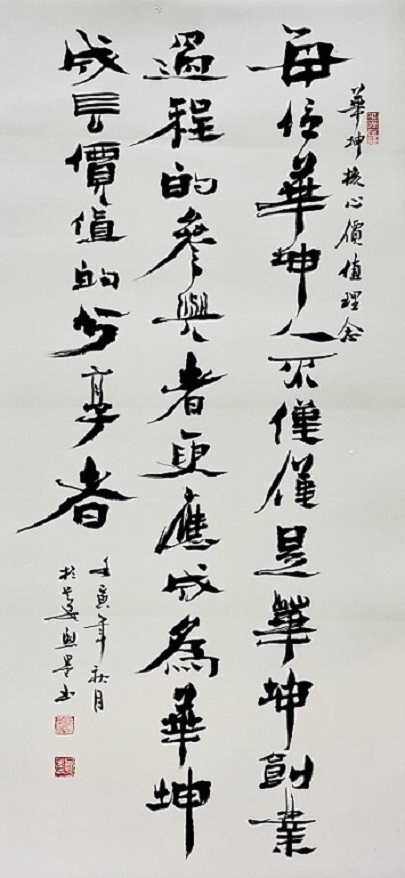 華坤核心價值理念
每位華坤人不僅僅是華坤創業
過程的參與者更應成為華坤
成長價值的分享者
壬寅年秋月
於長安興墨书